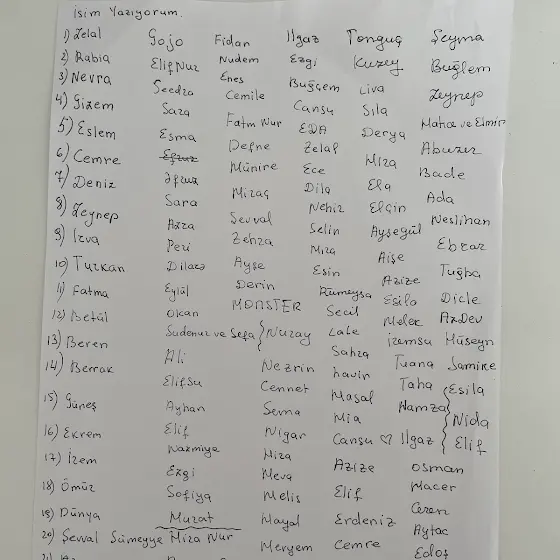 isim Yazıyorum.
1) Zelal Gojo Fidan Ilgaz Tonguç Şeyma
2) Rabia Elif Nur Nudem Ezgi Kuzey Buğlem
3) Nevra Seedra Enes Buğçem Liva Zeynep
4) Gizem Saza Cemile Cansu Sıla Maho ve Elmir
5) Eslem Esma Fatm Nur EDA Derya Abuzer
6) Cemre Efruz Defne Zelal Mira Bade
7) Deniz Efruz Münire Ece Ela Ada
8) Zeynep Sara Miraç Dila Elçin Neslihan
9) Izva Azra Sevval Nehir Ayşegül Ebrar
10) Türkan Peri Zehra Selin Aişe Tuğba
11) Fatma Dilara Ayşe Mira Azize Dicle
12) Betül Eylül Derin Esin Esila AzDev
13) Beren Okan MONSTER Rümeysa Melek Hüseyn
14) Berrak Sudenur ve Sefa Nuray Secil İremsu Samire
15) Güneş Ali Nezrin Lale Tuana Esila
16) Ekrem Elifsu Cennet Sahra Taha Nida
17) İzem Ayhan Sema havin Hamza Elif
18) Ömür Elif Nigar Masal Ilgaz osman
19) Dünya Nazmiye Mira Mia Macer
20) Şevval Sümeyye Mira Nur Ezgi Meva Cansu ♡ Ceren
Sofiya Melis Azize Aytac
Murat Hayal Elif Edoş
Meryem Erdeniz
Cemre